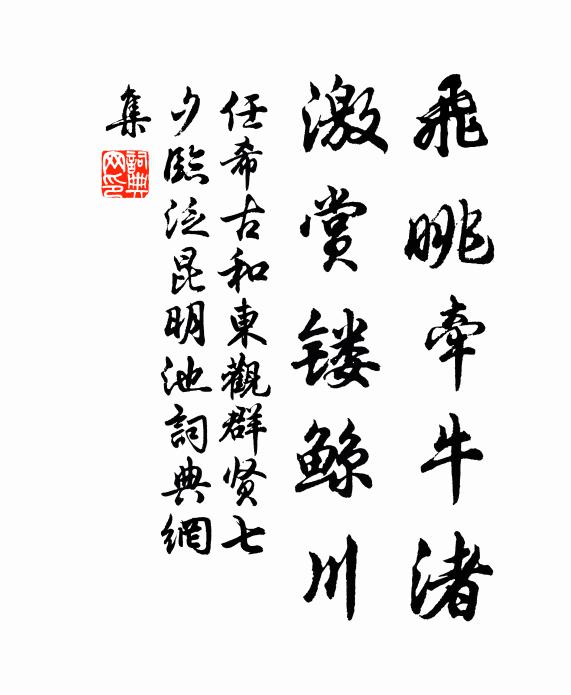 飛眺牽牛渚
激赏镂鲸川
任希古和東觀群贤七
夕臨泛昆明池詞典網
集
詞典网印